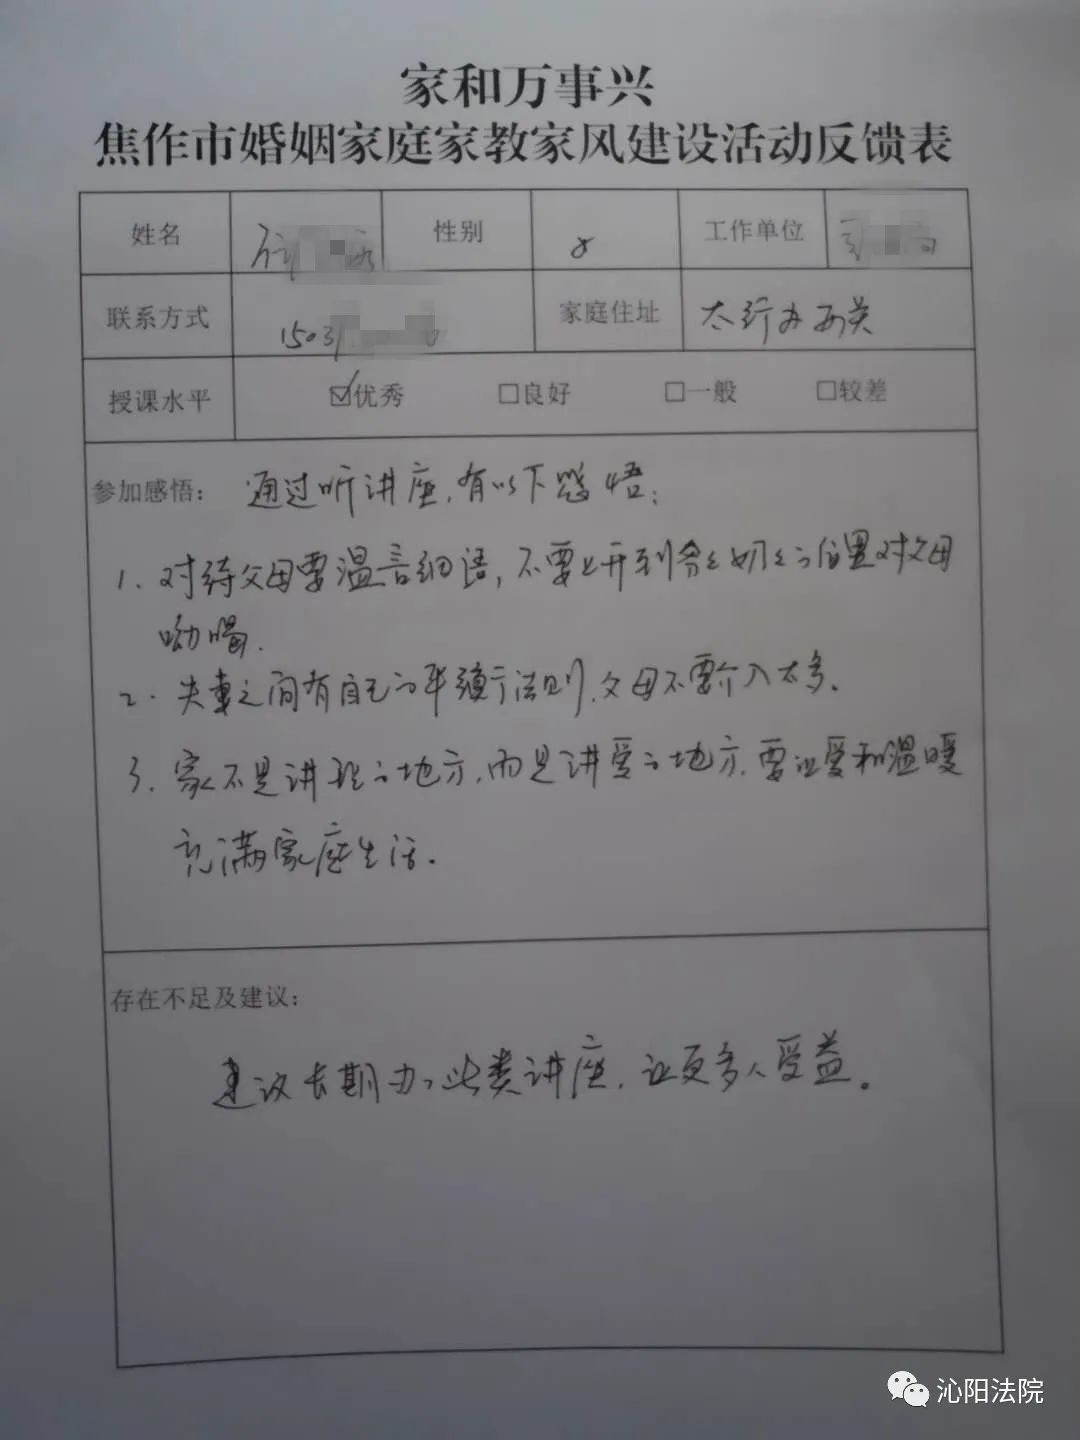 家和万事兴
焦作市婚姻家庭家教家风建设活动反馈表
姓名 性别 女 工作单位
联系方式 1503 家庭住址 太行办西关
授课水平 ☑优秀 □良好 □一般 □较差
参加感悟： 通过听讲座，有以下感悟：
1. 对待父母要温言细语，不要上升到爷爷奶奶的位置对父母
吆喝.
2. 夫妻之间有自己的平衡法则，父母不要介入太多.
3. 家不是讲理的地方，而是讲爱的地方，要让爱和温暖
充满家庭生活.
存在不足及建议：
建议长期办此类讲座，让更多人受益。
沁阳法院